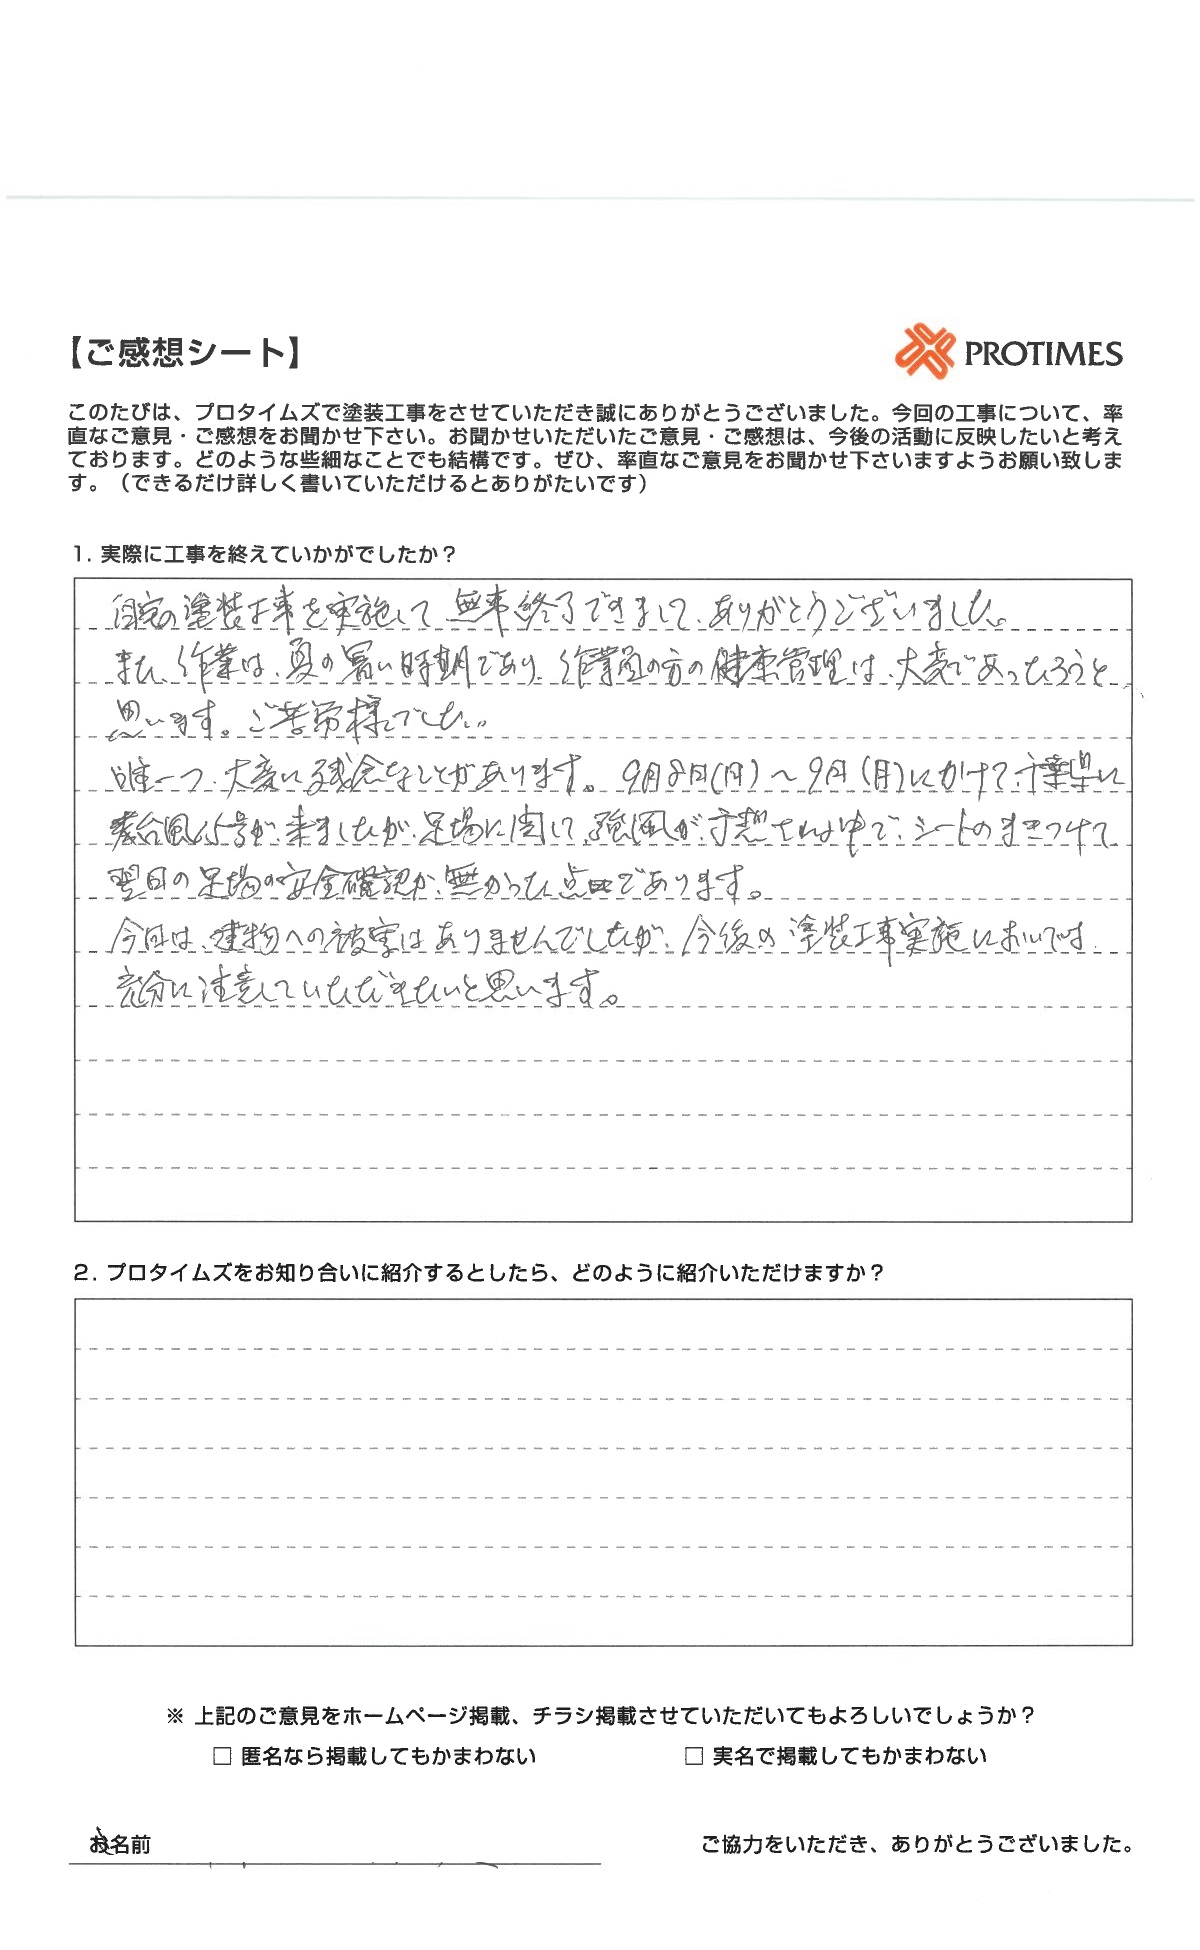 【ご感想シート】
PROTIMES
このたびは、プロタイムズで塗装工事をさせていただき誠にありがとうございました。今回の工事について、率
直なご意見・ご感想をお聞かせ下さい。お聞かせいただいたご意見・ご感想は、今後の活動に反映したいと考え
ております。どのような些細なことでも結構です。ぜひ、率直なご意見をお聞かせ下さいますようお願い致しま
す。（できるだけ詳しく書いていただけるとありがたいです）
1. 実際に工事を終えていかがでしたか？
自宅の塗装工事を実施して無事終了できまして、ありがとうございました。
また、作業は、夏の暑い時期であり、作業員の方の健康管理は、大変であったろうと
思います。ご苦労様でした。
唯一つ、大変に残念なことがあります。9月8日(月)～9日(月)にかけて、千葉県に
台風15号が、来ましたが、足場に関して、強風が、予想される中で、シートのまきつけて
翌日の足場の安全確認が、無かった点であります。
今回は、建物への被害はありませんでしたが、今後の塗装工事実施においては、
充分に注意していただきたいと思います。
2. プロタイムズをお知り合いに紹介するとしたら、どのように紹介いただけますか？
※ 上記のご意見をホームページ掲載、チラシ掲載させていただいてもよろしいでしょうか？
□ 匿名なら掲載してもかまわない □ 実名で掲載してもかまわない
お名前 ご協力をいただき、ありがとうございました。